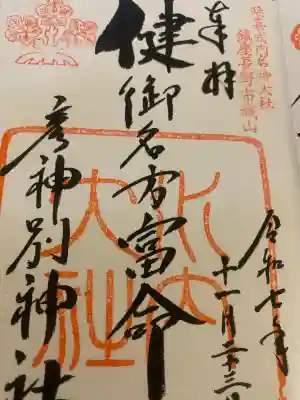 延喜式内名神大社
鎮座長野市城山
奉拝
健御名方富命
彦神別神社
水内
大社
令和七年
十一月二十三日